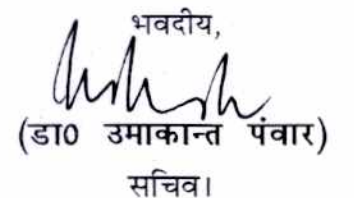 भवदीय,
(डा0 उमाकान्त पंवार)
सचिव।